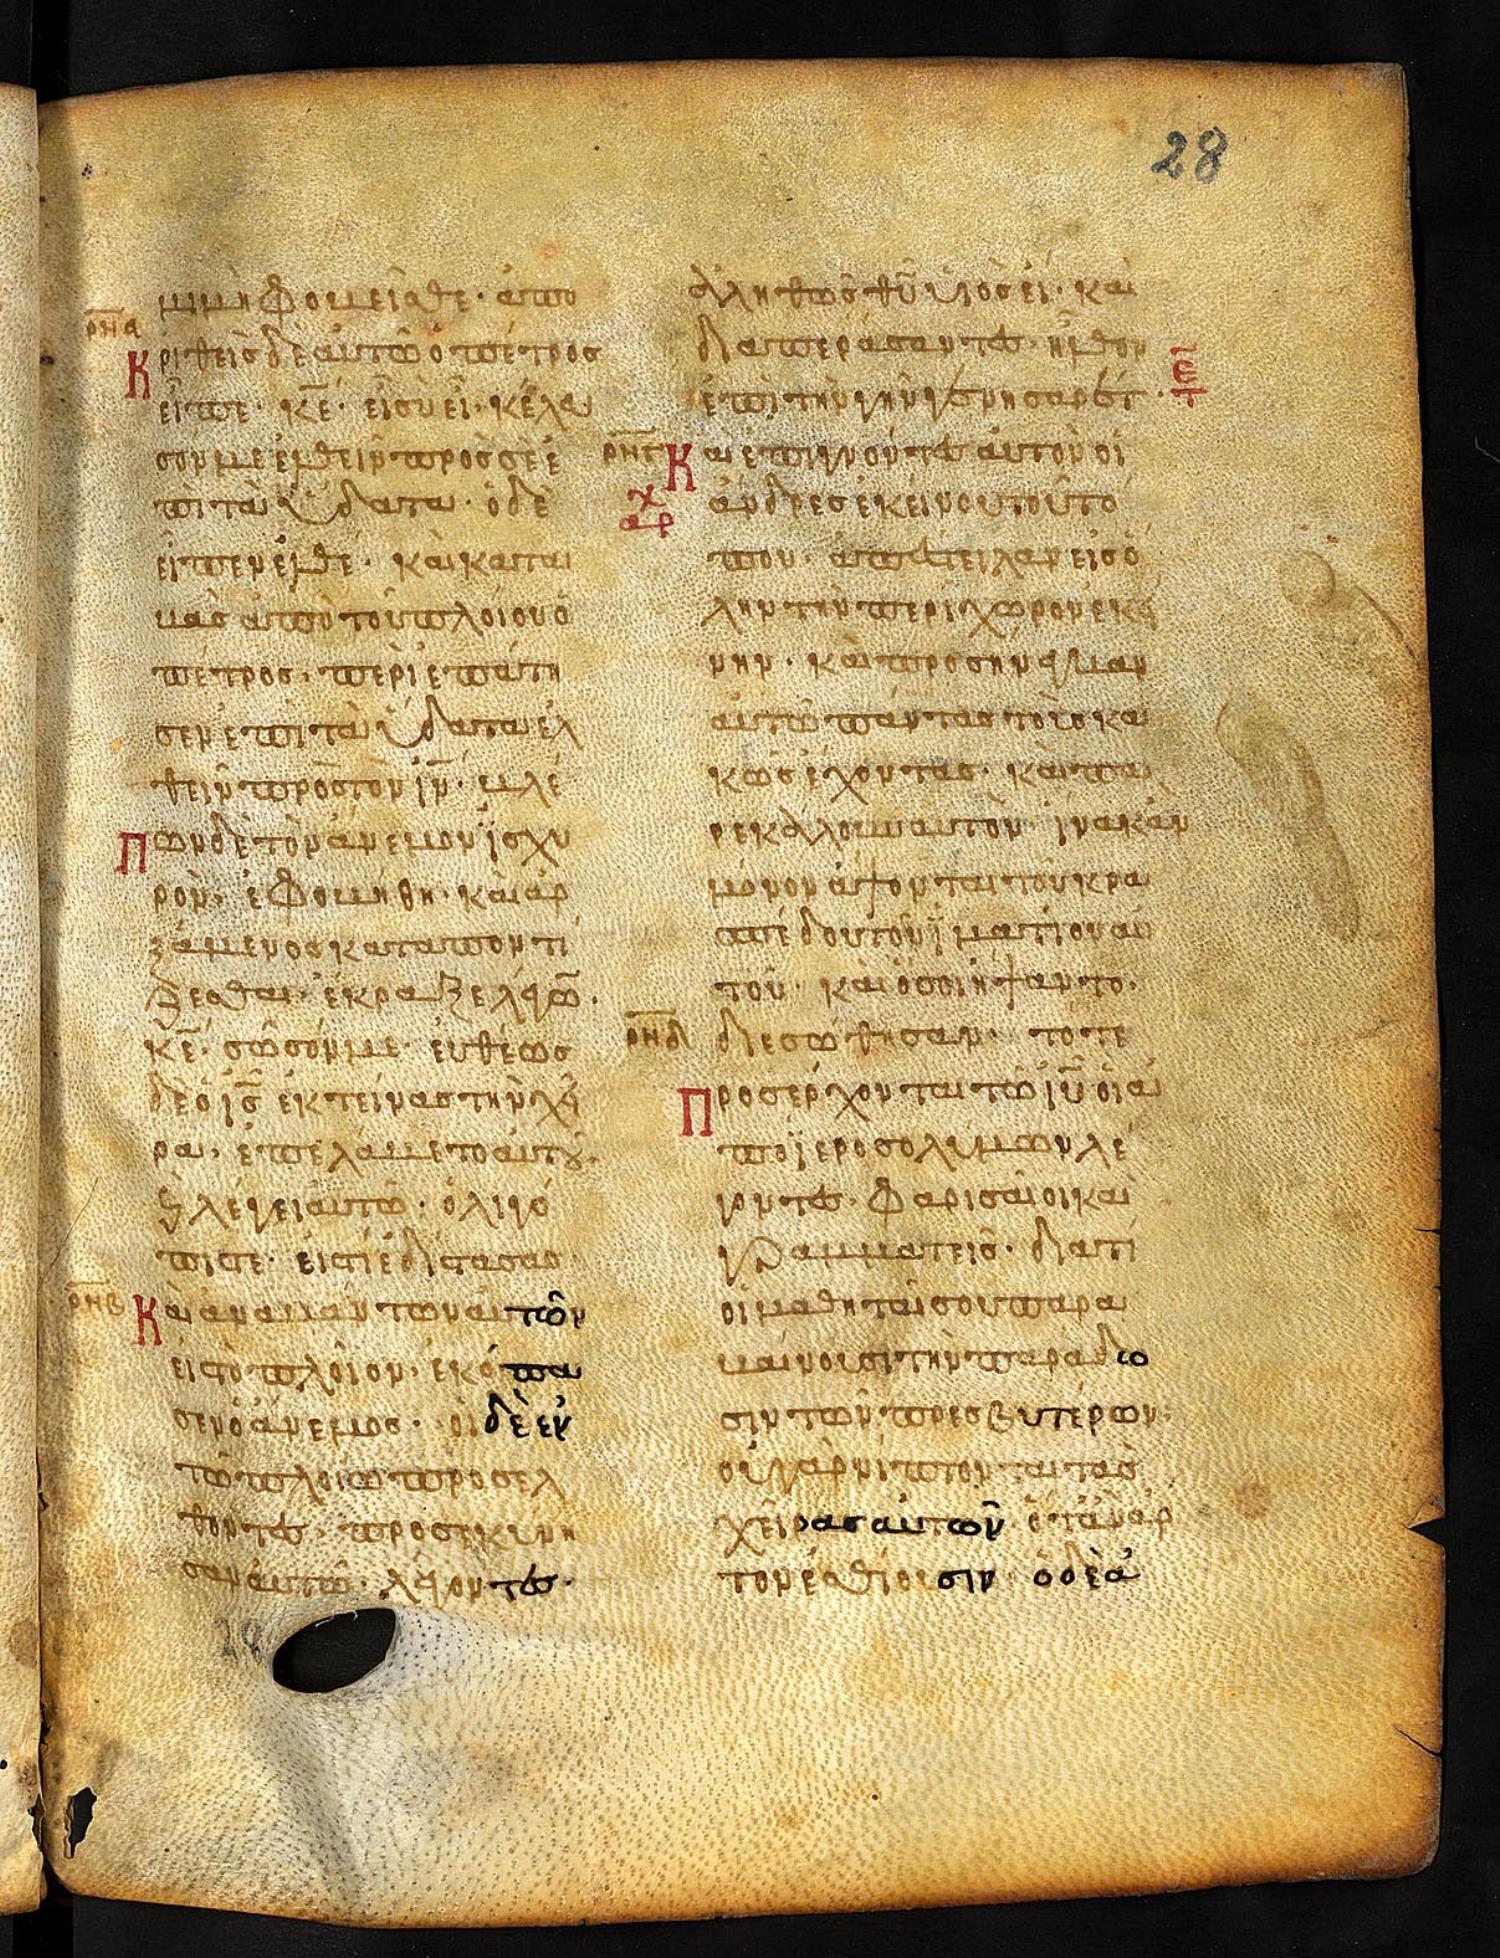 28
μι μὴ φοβεῖσθε· ἀπο
ρ̅ν̅α̅
Κριθεὶς δὲ αὐτῶ ὁ πέτρος
εἶπε· κ̅ε̅· εἰ σὺ εἶ· κέλευ
σόν με ἐλθεῖν πρὸς σὲ ἐ
πὶ τὰ ὕδατα· ὁ δὲ
εἶπεν ἐλθέ· καὶ καταὶ
βὰς ἀπὸ τοῦ πλοίου ὁ
πέτρος· περὶεπάτη
σεν ἐπὶ τὰ ὕδατα ἐλ
θεῖν πρὸς τὸν ι̅ν̅· βλέ
Πων δὲ τὸν ἄνεμον ἰσχυ
ρὸν· ἐφοβήθη· καὶ ἀρ
ξάμενος καταποντί
ζεσθαι· ἔκραξε λέγω̅·
κ̅ε̅· σῶσόν με· εὐθέως
δὲ ὁ ι̅ς̅ ἐκτείνας τὴν χεῖ
ρα· ἐπελάβετο αὐτοῦ·
ϗ λέγει αὐτῶ· ὀλιγό
πιστε· εἰς τί ἐδίστασας
ρ̅ν̅β̅
Καὶ ἀναβάντων αὐτῶν
εἰς τὸ πλοῖον· ἐκόπα
σεν ὁ ἄνεμος· οἱ δὲ ἐν
τῶ πλοίω προσελ
θόντες· προσεκύνη
σαν αὐτῶ· λέγοντες·
ἀληθῶς θ̅υ̅ υἱὸς εἶ· καὶ
διαπεράσαντες· ἦλθον
ἐπὶ τὴν γῆν γεννησαρέτ·
ρ̅ν̅γ̅
Καὶ ἐπιγνόντες αὐτὸν οἱ
ἄνδρες ἐκείνου τοῦ τό
που· ἀπέστειλαν εἰς ὅ
λην τὴν περίχωρον ἐκεί
νην· καὶ προσήνεγκαν
αὐτῶ πάντας τοὺς κα
κῶς ἔχοντας· καὶ πα
ρεκάλλουν αὐτὸν· ἵνα κἂν
μόνον ἅψονται τοῦ κρα
σπέδου τοῦ ἱματίου αὐ
τοῦ· καὶ ὅσοι ἥψαντο·
ρ̅ν̅δ̅
διεσώθησαν· τότε
Προσέρχονται τῶ ι̅υ̅ οἱ ἀ
πὸ ἱεροσολύμων λέ
γοντες· φαρισαῖοι καὶ
γραμματεῖς· διατί
οἱ μαθηταὶ σου παρα
βαίνουσι τὴν παράδω
σιν τῶν πρεσβυτέρων·
οὐ γὰρ νίπτονται τὰς
χεῖρας αὐτῶν ὅταν ἄρ
τον ἐσθίουσιν· ὁ δὲ ἀ